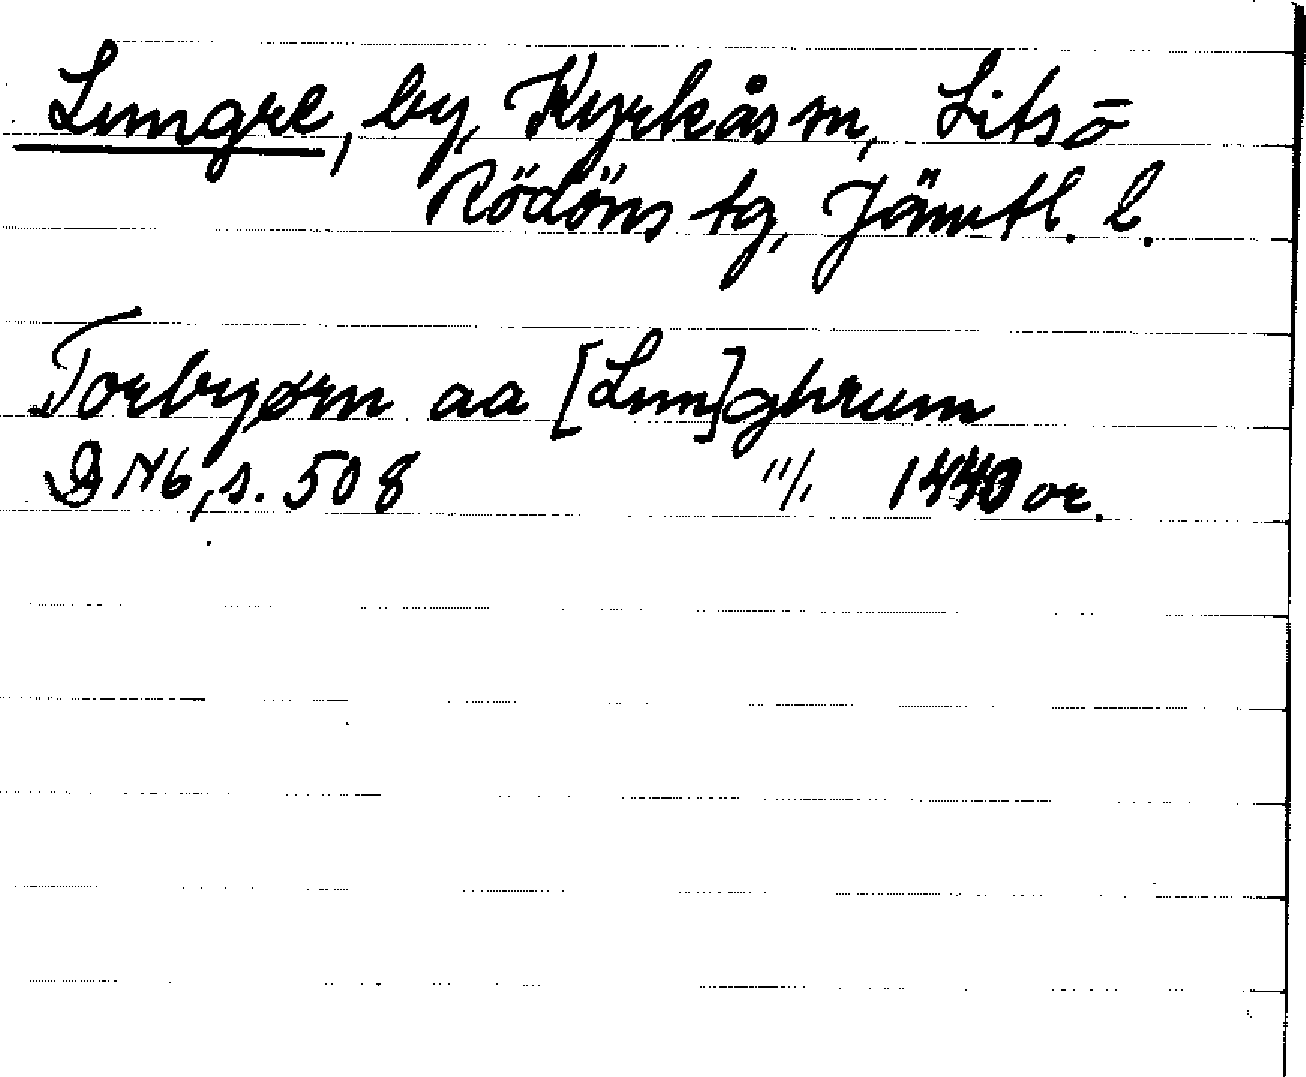 Lungre, by, Kyrkås sn, Lits o
Rödöns tg, Jämtl. l.
Torbyørn aa [Lun]ghrum
DN 6, s. 508 "/. 1440 or.